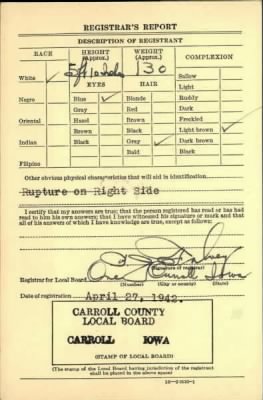 REGISTRAR'S REPORT
DESCRIPTION OF REGISTRANT
RACE HEIGHT (Approx.) WEIGHT (Approx.) COMPLEXION
5 ft 130
White ✓ EYES HAIR Sallow
Light
Negro Blue ✓ Blonde Ruddy
Gray Red Dark
Oriental Hazel Brown Freckled
Brown Black Light brown ✓
Indian Black Gray ✓ Dark brown
Bald Black
Filipino
Other obvious physical characteristics that will aid in identification
Rupture on Right Side
I certify that my answers are true; that the person registered has read or has had
read to him his own answers; that I have witnessed his signature or mark and that
all of his answers of which I have knowledge are true, except as follows:
(Signature of registrar)
Registrar for Local Board One Carroll Iowa
(Number) (City or county) (State)
Date of registration April 27, 1942.
CARROLL COUNTY
LOCAL BOARD
CARROLL IOWA
(STAMP OF LOCAL BOARD)
(The stamp of the Local Board having jurisdiction of the registrant
shall be placed in the above space)